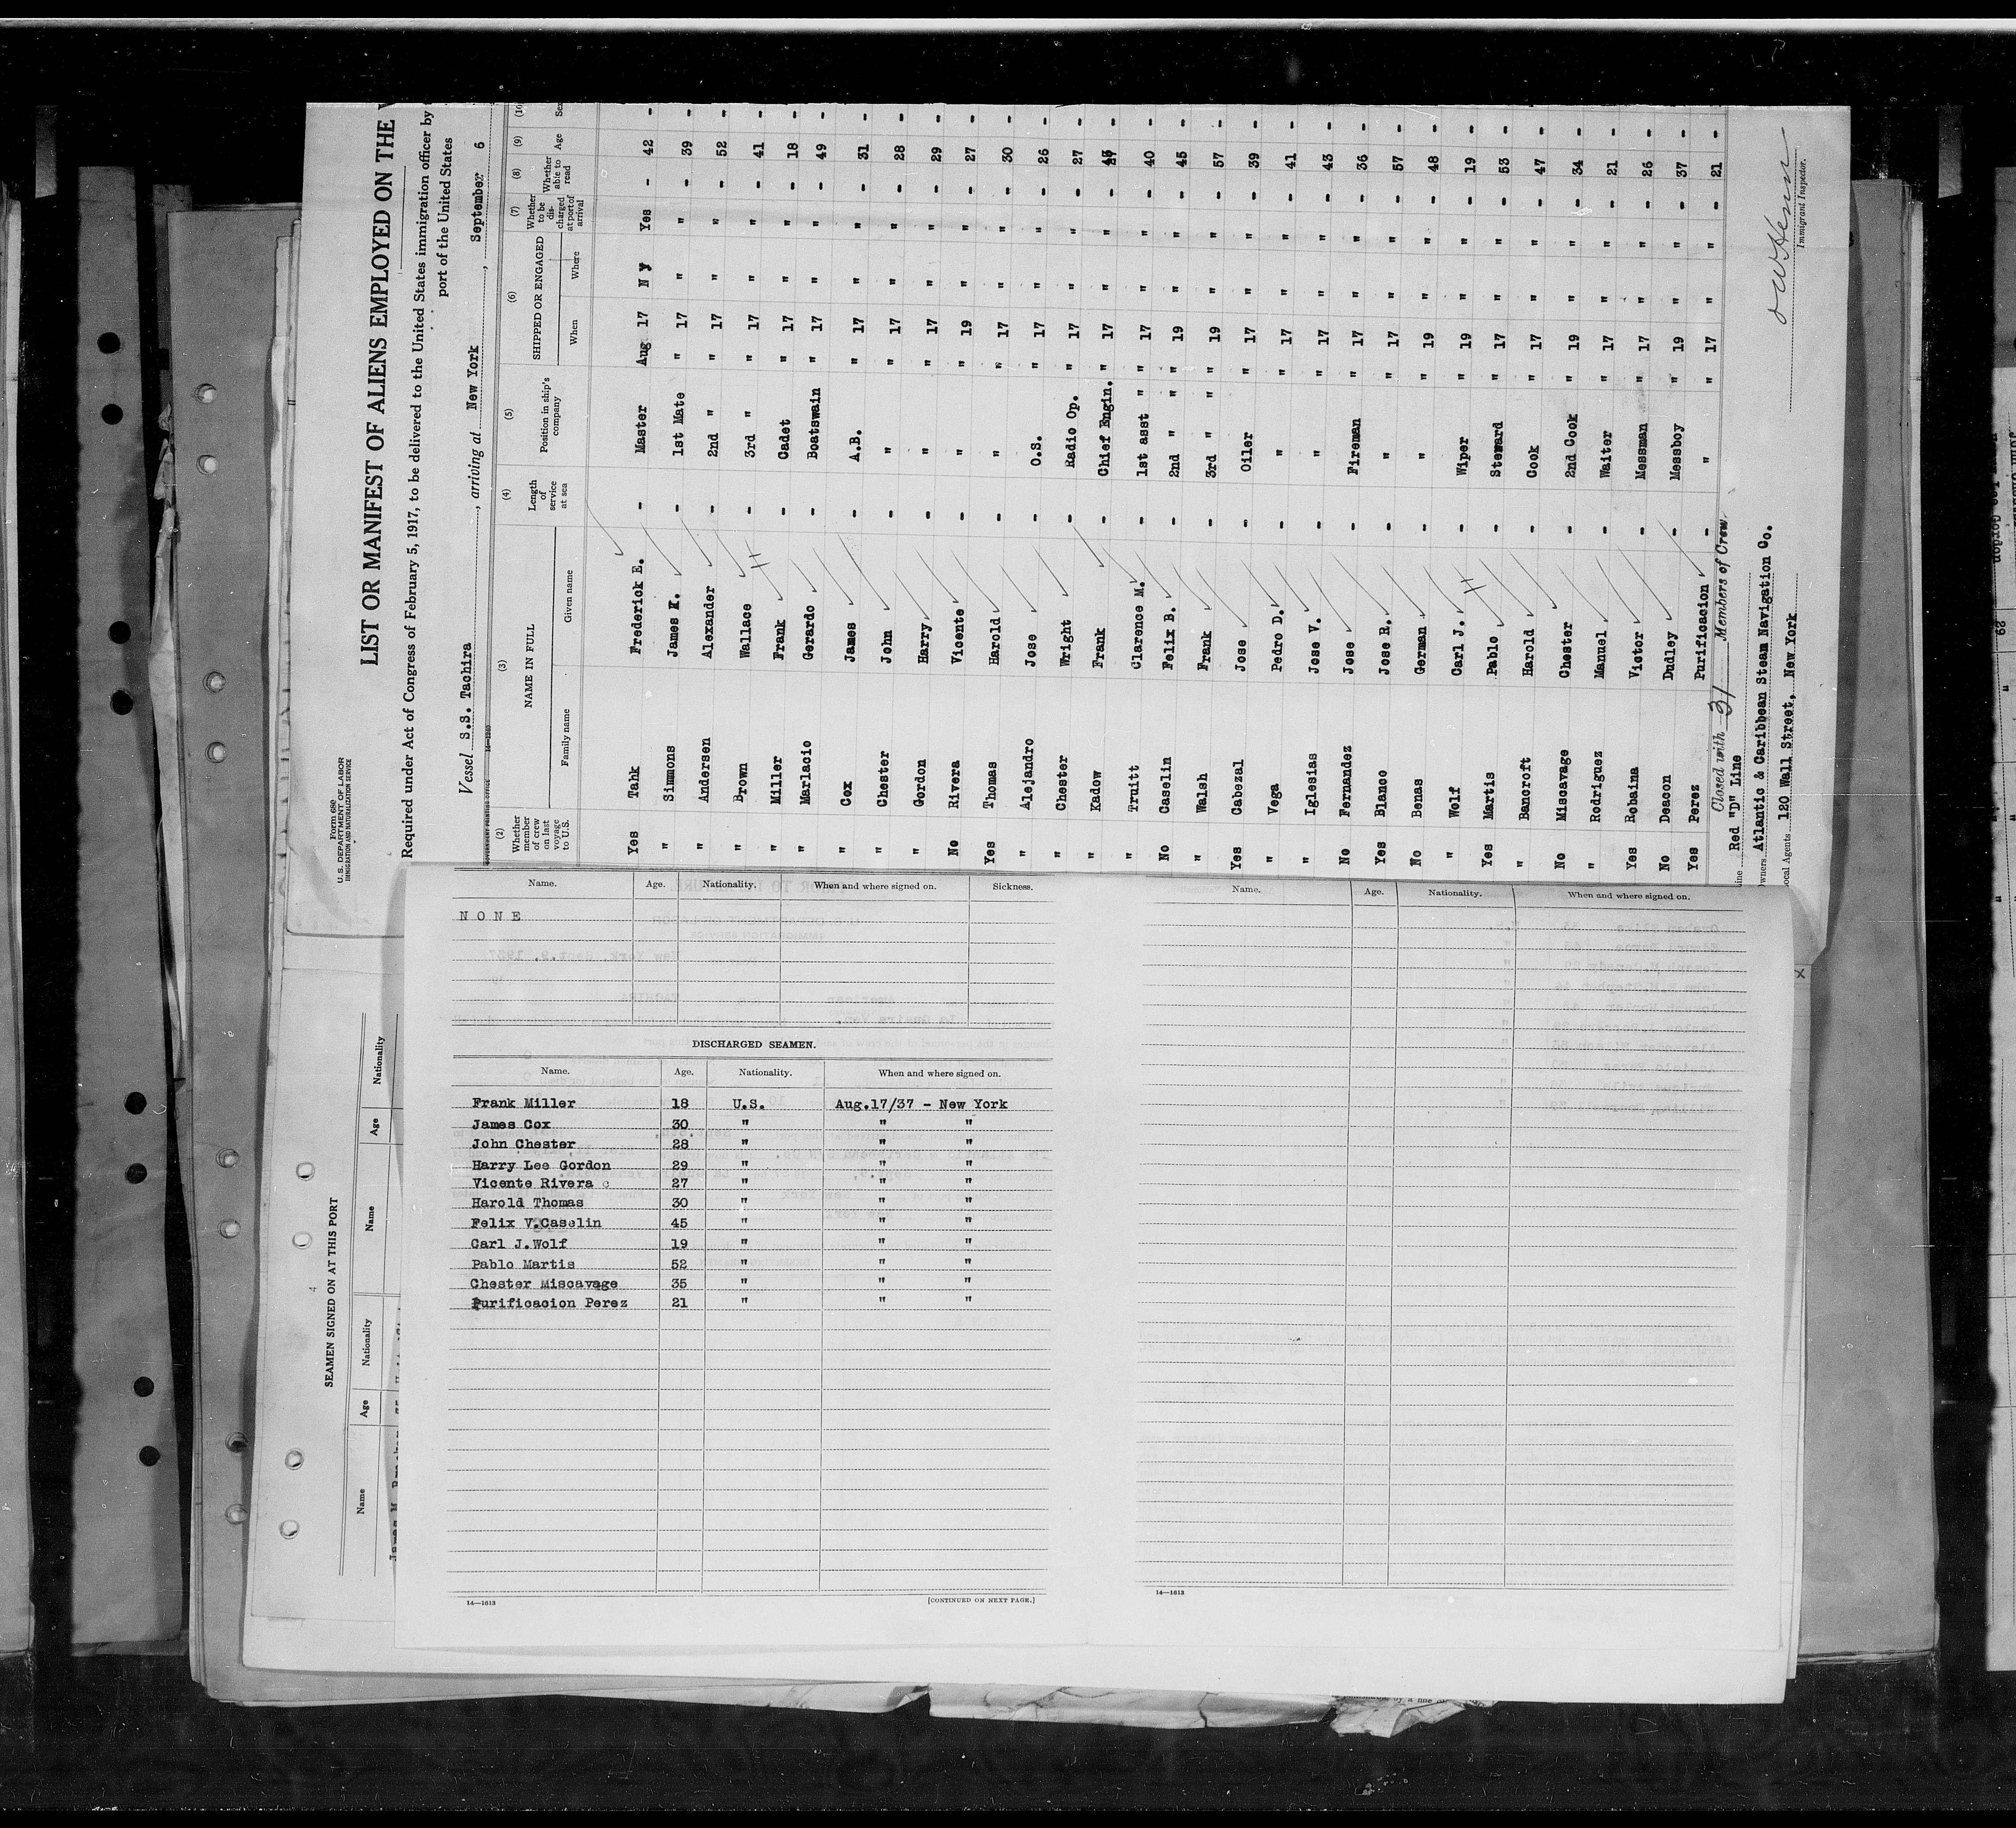 Form 680
U.S. DEPARTMENT OF LABOR
IMMIGRATION AND NATURALIZATION SERVICE
LIST OR MANIFEST OF ALIENS EMPLOYED ON THE
Required under Act of Congress of February 5, 1917, to be delivered to the United States immigration officer by
port of the United States
Vessel S.S. Tachira, arriving at New York, September 6
(2) Whether member of crew on last voyage to U.S. (3) NAME IN FULL Family name Given name (4) Length of service at sea (5) Position in ship's company (6) SHIPPED OR ENGAGED When Where (7) Whether to be discharged at port of arrival (8) Whether able to read (9) Age (10) Sex
Yes Tahk Frederick E. - Master Aug 17 N Y Yes - 42 -
" Simmons James K. - 1st Mate " 17 " " - 39 -
" Andersen Alexander - 2nd " " 17 " " - 52 -
" Brown Wallace - 3rd " " 17 " " - 41 -
" Miller Frank - Cadet " 17 " " - 18 -
" Marlacio Gerardo - Boatswain " 17 " " - 49 -
" Cox James - A.B. " 17 " " - 31 -
" Chester John - " " 17 " " - 28 -
" Gordon Harry - " " 17 " " - 29 -
No Rivera Vicente - " " 19 " " - 27 -
Yes Thomas Harold - " " 17 " " - 30 -
" Alejandro Jose - O.S. " 17 " " - 26 -
" Chester Wright - Radio Op. " 17 " " - 27 -
" Kadow Frank - Chief Engin. " 17 " " - -
" Truitt Clarence M. - 1st asst " " 17 " " - 40 -
No Caselin Felix B. - 2nd " " " 19 " " - 45 -
" Walsh Frank - 3rd " " " 19 " " - 57 -
Yes Cabezal Jose - Oiler " 17 " " - 39 -
" Vega Pedro D. - " " 17 " " - 41 -
" Iglesias Jose V. - " " 17 " " - 43 -
No Fernandez Jose - Fireman " 17 " " - 36 -
Yes Blanco Jose R. - " " 17 " " - 57 -
No Benas German - " " 19 " " - 48 -
" Wolf Carl J. - Wiper " 19 " " - 19 -
Yes Martis Pablo - Steward " 17 " " - 53 -
" Bancroft Harold - Cook " 17 " " - 47 -
No Miscavage Chester - 2nd Cook " 19 " " - 34 -
" Rodriguez Manuel - Waiter " 17 " " - 21 -
Yes Robaina Victor - Messman " 17 " " - 26 -
No Deacon Dudley - Messboy " 19 " " - 37 -
Yes Perez Purificacion - " " 17 " " - 21 -
Closed with 31 Members of Crew
Line Red "D" Line
Owners Atlantic & Caribbean Steam Navigation Co.
Local Agents 120 Wall Street, New York
Immigrant Inspector.
Name. Age. Nationality. When and where signed on. Sickness.
NONE
DISCHARGED SEAMEN.
Name. Age. Nationality. When and where signed on.
Frank Miller 18 U.S. Aug.17/37 - New York
James Cox 30 " " "
John Chester 28 " " "
Harry Lee Gordon 29 " " "
Vicente Rivera 27 " " "
Harold Thomas 30 " " "
Felix V.Caselin 45 " " "
Carl J.Wolf 19 " " "
Pablo Martis 52 " " "
Chester Miscavage 35 " " "
Purificacion Perez 21 " " "
14—1613
[CONTINUED ON NEXT PAGE.]
Name. Age. Nationality. When and where signed on.
14—1613
SEAMEN SIGNED ON AT THIS PORT
Name Age Nationality Name Age Nationality